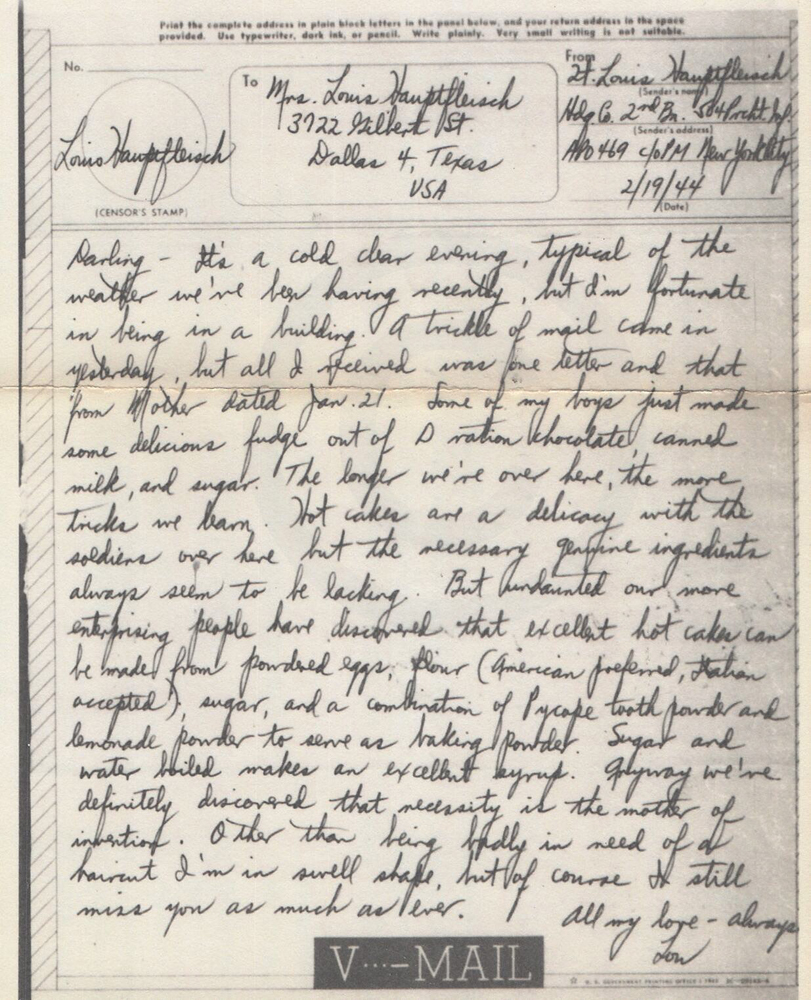 Print the complete address in plain block letters in the panel below, and your return address in the space
provided. Use typewriter, dark ink, or pencil. Write plainly. Very small writing is not suitable.
No.
To
Mrs. Louis Hauptfleisch
3722 Gilbert St.
Dallas 4, Texas
USA
From
Lt. Louis Hauptfleisch
(Sender's name)
Hdq Co. 2nd Bn. 504 Prcht. Inf.
(Sender's address)
APO 469 c/o PM New York City
2/19/44
(Date)
Louis Hauptfleisch
(CENSOR'S STAMP)
Darling - It's a cold clear evening, typical of the
weather we've been having recently, but I'm fortunate
in being in a building. A trickle of mail came in
yesterday, but all I received was one letter and that
from Mother dated Jan. 21. Some of my boys just made
some delicious fudge out of D ration chocolate, canned
milk, and sugar. The longer we're over here, the more
tricks we learn. Hot cakes are a delicacy with the
soldiers over here but the necessary genuine ingredients
always seem to be lacking. But undaunted our more
enterprising people have discovered that excellent hot cakes can
be made from powdered eggs, flour (American preferred, Italian
accepted), sugar, and a combination of Pycope tooth powder and
lemonade powder to serve as baking powder. Sugar and
water boiled makes an excellent syrup. Anyway we've
definitely discovered that necessity is the mother of
invention. Other than being badly in need of a
haircut I'm in swell shape, but of course I still
miss you as much as ever.
All my love - always
Lou
V···—MAIL
U. S. GOVERNMENT PRINTING OFFICE : 1943